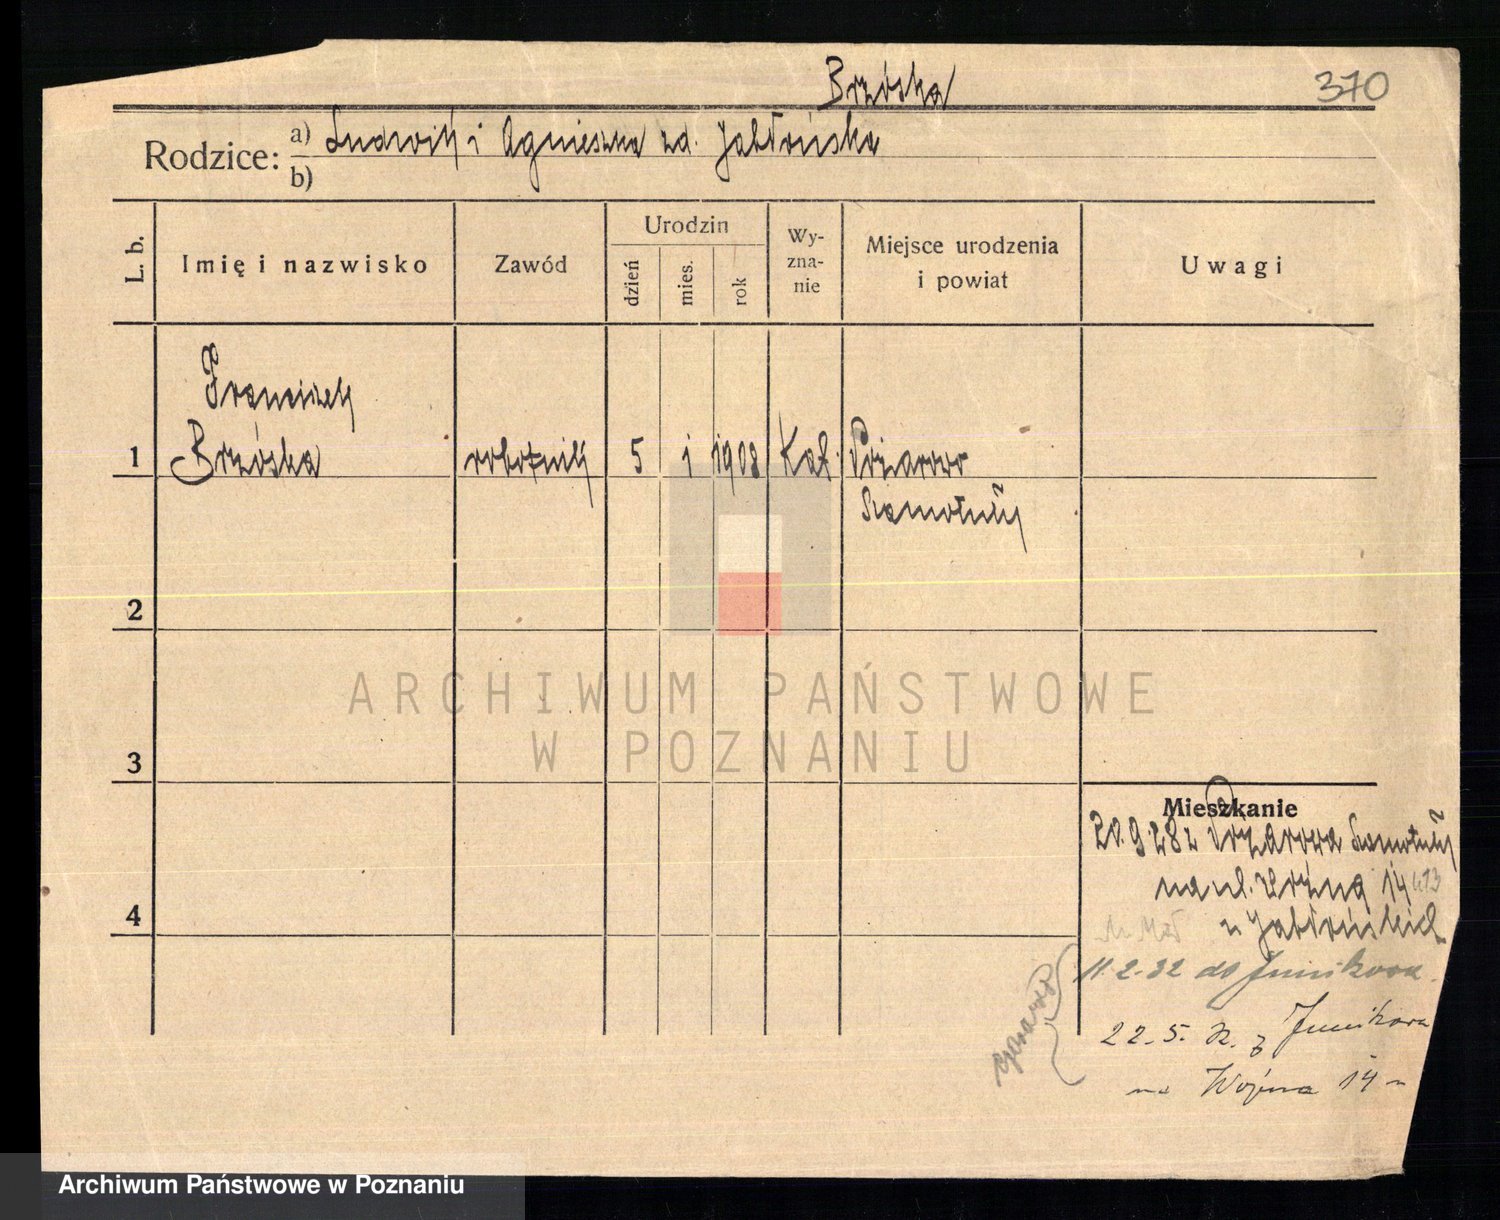 Brzóska
370
Rodzice: a) Ludwik i Agnieszka zd. Jabłońska
b)
L. b.
Imię i nazwisko
Zawód
Urodzin
dzień
mies.
rok
Wy-
zna-
nie
Miejsce urodzenia
i powiat
Uwagi
Franciszek
1 Brzóska robotnik 5 1 1908 Kat. Pożarowo
Szamotuły
2
3
4
ARCHIWUM PAŃSTWOWE
W POZNANIU
Mieszkanie
20.9.28 z Pożarowa Szamotuły
na ul. 14
u Jabłońskich
11.2.32 do Junikowa.
22.5. z Junikowa
na 14
czasowo
Archiwum Państwowe w Poznaniu